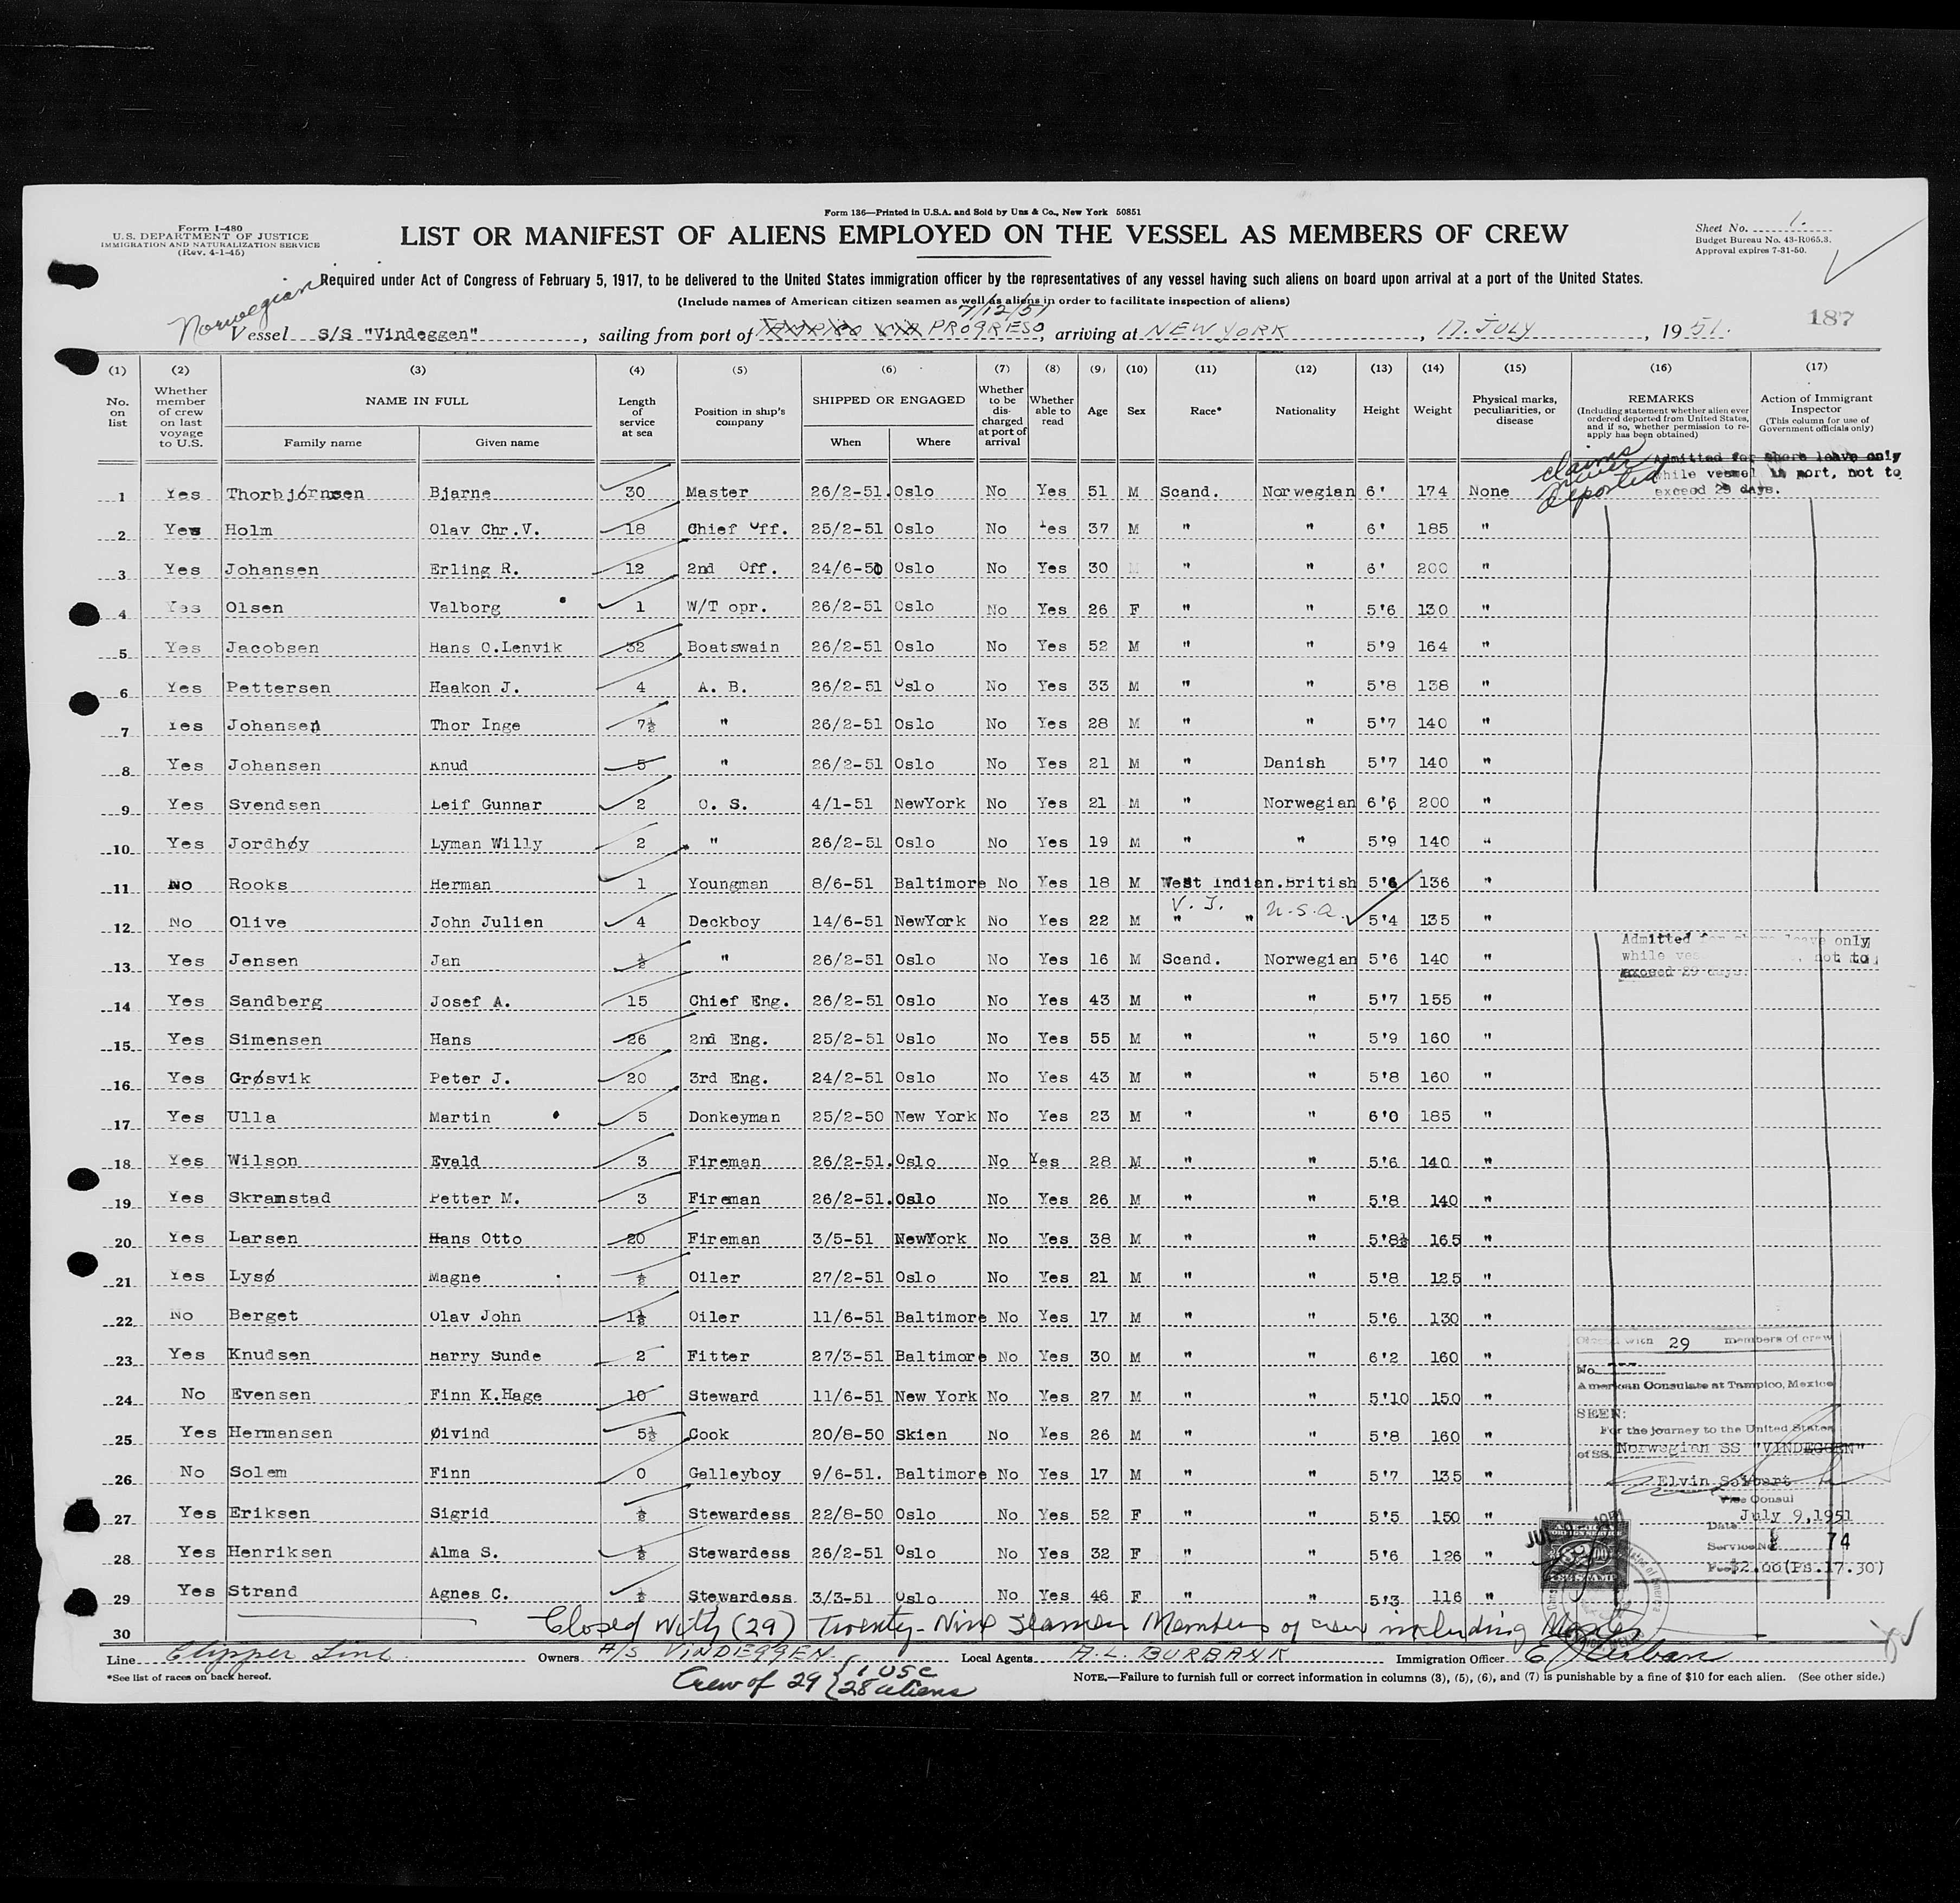 Form 136—Printed in U.S.A. and Sold by Unz & Co., New York 50851
Form I-480
U.S. DEPARTMENT OF JUSTICE
IMMIGRATION AND NATURALIZATION SERVICE
(Rev. 4-1-45)
LIST OR MANIFEST OF ALIENS EMPLOYED ON THE VESSEL AS MEMBERS OF CREW
Sheet No. 1.
Budget Bureau No. 43-R065.3.
Approval expires 7-31-50.
Required under Act of Congress of February 5, 1917, to be delivered to the United States immigration officer by the representatives of any vessel having such aliens on board upon arrival at a port of the United States.
(Include names of American citizen seamen as well as aliens in order to facilitate inspection of aliens)
Norwegian
7/12/51
Vessel S/S "Vindeggen", sailing from port of PROGRESO, arriving at NEW YORK, 17. JULY, 1951.
187
(1) (2) (3) (4) (5) (6) (7) (8) (9) (10) (11) (12) (13) (14) (15) (16) (17)
No. on list
Whether member of crew on last voyage to U.S.
NAME IN FULL
Family name Given name
Length of service at sea
Position in ship's company
SHIPPED OR ENGAGED
When Where
Whether to be discharged at port of arrival
Whether able to read
Age
Sex
Race*
Nationality
Height
Weight
Physical marks, peculiarities, or disease
REMARKS
(Including statement whether alien ever ordered deported from United States, and if so, whether permission to reapply has been obtained)
Action of Immigrant Inspector
(This column for use of Government officials only)
claims never deported
Admitted for shore leave only
while vessel in port, not to
exceed 29 days.
1 Yes Thorbjórnsen Bjarne 30 Master 26/2-51. Oslo No Yes 51 M Scand. Norwegian 6' 174 None
2 Yes Holm Olav Chr.V. 18 Chief Off. 25/2-51 Oslo No Yes 37 M " " 6' 185 "
3 Yes Johansen Erling R. 12 2nd Off. 24/6-50 Oslo No Yes 30 M " " 6' 200 "
4 Yes Olsen Valborg 1 W/T opr. 26/2-51 Oslo No Yes 26 F " " 5'6 130 "
5 Yes Jacobsen Hans O.Lenvik 32 Boatswain 26/2-51 Oslo No Yes 52 M " " 5'9 164 "
6 Yes Pettersen Haakon J. 4 A. B. 26/2-51 Oslo No Yes 33 M " " 5'8 138 "
7 Yes Johansen Thor Inge 7½ " 26/2-51 Oslo No Yes 28 M " " 5'7 140 "
8 Yes Johansen Knud 5 " 26/2-51 Oslo No Yes 21 M " Danish 5'7 140 "
9 Yes Svendsen Leif Gunnar 2 O. S. 4/1-51 NewYork No Yes 21 M " Norwegian 6'6 200 "
10 Yes Jordhøy Lyman Willy 2 " 26/2-51 Oslo No Yes 19 M " " 5'9 140 "
11 No Rooks Herman 1 Youngman 8/6-51 Baltimore No Yes 18 M West Indian. British 5'6 136 "
V. I. U.S.A.
12 No Olive John Julien 4 Deckboy 14/6-51 NewYork No Yes 22 M " " 5'4 135 "
Admitted for shore leave only
while ves , not to
exceed 29 days.
13 Yes Jensen Jan ½ " 26/2-51 Oslo No Yes 16 M Scand. Norwegian 5'6 140 "
14 Yes Sandberg Josef A. 15 Chief Eng. 26/2-51 Oslo No Yes 43 M " " 5'7 155 "
15 Yes Simensen Hans 26 2nd Eng. 25/2-51 Oslo No Yes 55 M " " 5'9 160 "
16 Yes Grøsvik Peter J. 20 3rd Eng. 24/2-51 Oslo No Yes 43 M " " 5'8 160 "
17 Yes Ulla Martin 5 Donkeyman 25/2-50 New York No Yes 23 M " " 6'0 185 "
18 Yes Wilson Evald 3 Fireman 26/2-51. Oslo No Yes 28 M " " 5'6 140 "
19 Yes Skramstad Petter M. 3 Fireman 26/2-51. Oslo No Yes 26 M " " 5'8 140 "
20 Yes Larsen Hans Otto 20 Fireman 3/5-51 NewYork No Yes 38 M " " 5'8½ 165 "
21 Yes Lysø Magne ½ Oiler 27/2-51 Oslo No Yes 21 M " " 5'8 125 "
22 No Berget Olav John 1½ Oiler 11/6-51 Baltimore No Yes 17 M " " 5'6 130 "
23 Yes Knudsen Harry Sunde 2 Fitter 27/3-51 Baltimore No Yes 30 M " " 6'2 160 "
24 No Evensen Finn K.Hage 10 Steward 11/6-51 New York No Yes 27 M " " 5'10 150 "
25 Yes Hermansen Øivind 5½ Cook 20/8-50 Skien No Yes 26 M " " 5'8 160 "
26 No Solem Finn 0 Galleyboy 9/6-51. Baltimore No Yes 17 M " " 5'7 135 "
27 Yes Eriksen Sigrid ½ Stewardess 22/8-50 Oslo No Yes 52 F " " 5'5 150 "
28 Yes Henriksen Alma S. ½ Stewardess 26/2-51 Oslo No Yes 32 F " " 5'6 126 "
29 Yes Strand Agnes C. ½ Stewardess 3/3-51 Oslo No Yes 46 F " " 5'3 116 "
30
Closed with 29 members of crew
No. ---
American Consulate at Tampico, Mexico
SEEN:
For the journey to the United States
of SS. Norwegian SS "VINDEGGEN"
Elvin Seibert
Vice Consul
Date July 9, 1951
Service No. 74
Fee $2.00 (Ps.17.30)
Closed With (29) Twenty-Nine Seamen Members of crew including Master
Line Clipper Line Owners A/S VINDEGGEN. Local Agents A.L. BURBANK Immigration Officer
*See list of races on back hereof.
Crew of 29 { 1 USC
28 aliens
NOTE.—Failure to furnish full or correct information in columns (3), (5), (6), and (7) is punishable by a fine of $10 for each alien. (See other side.)